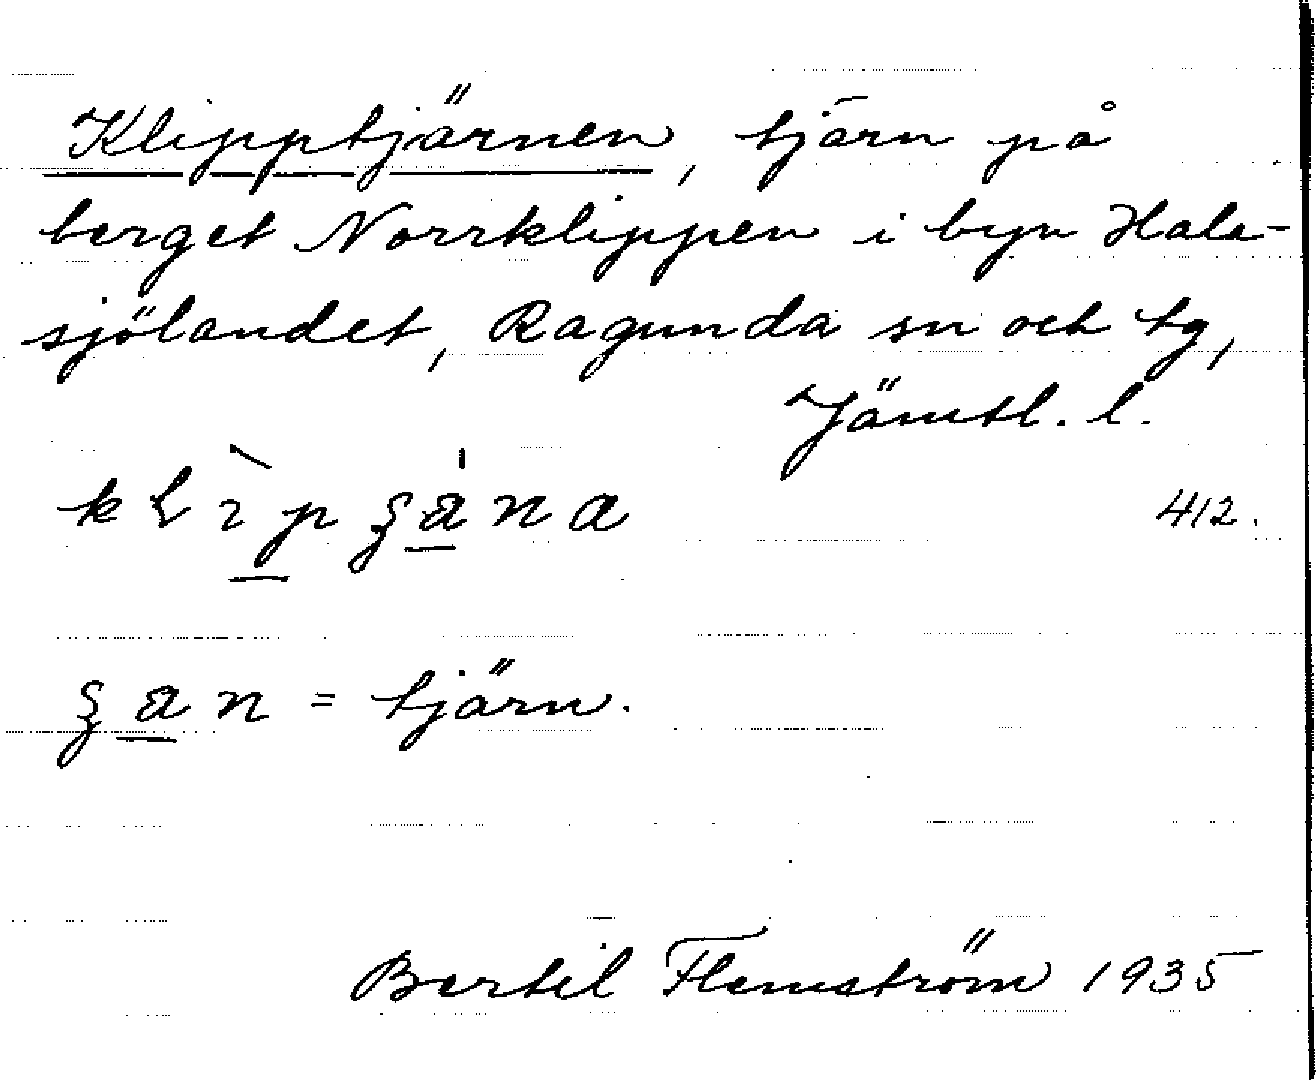 Klipptjärnen, tjärn på
berget Norrklippen i byn Hale-
sjölandet, Ragunda sn och tg,
Jämtl. l.
412.
= tjärn.
Bertil Flemström 1935